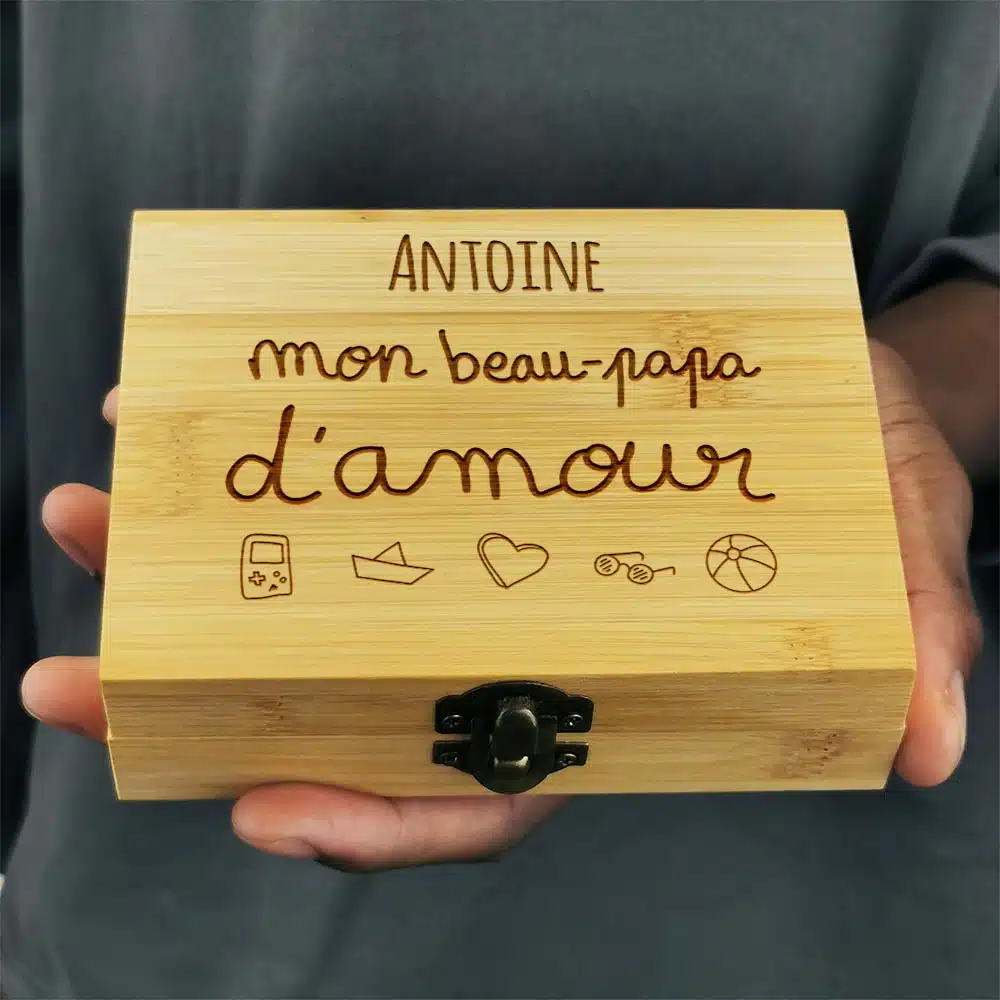 ANTOINE
mon beau-papa
d'amour